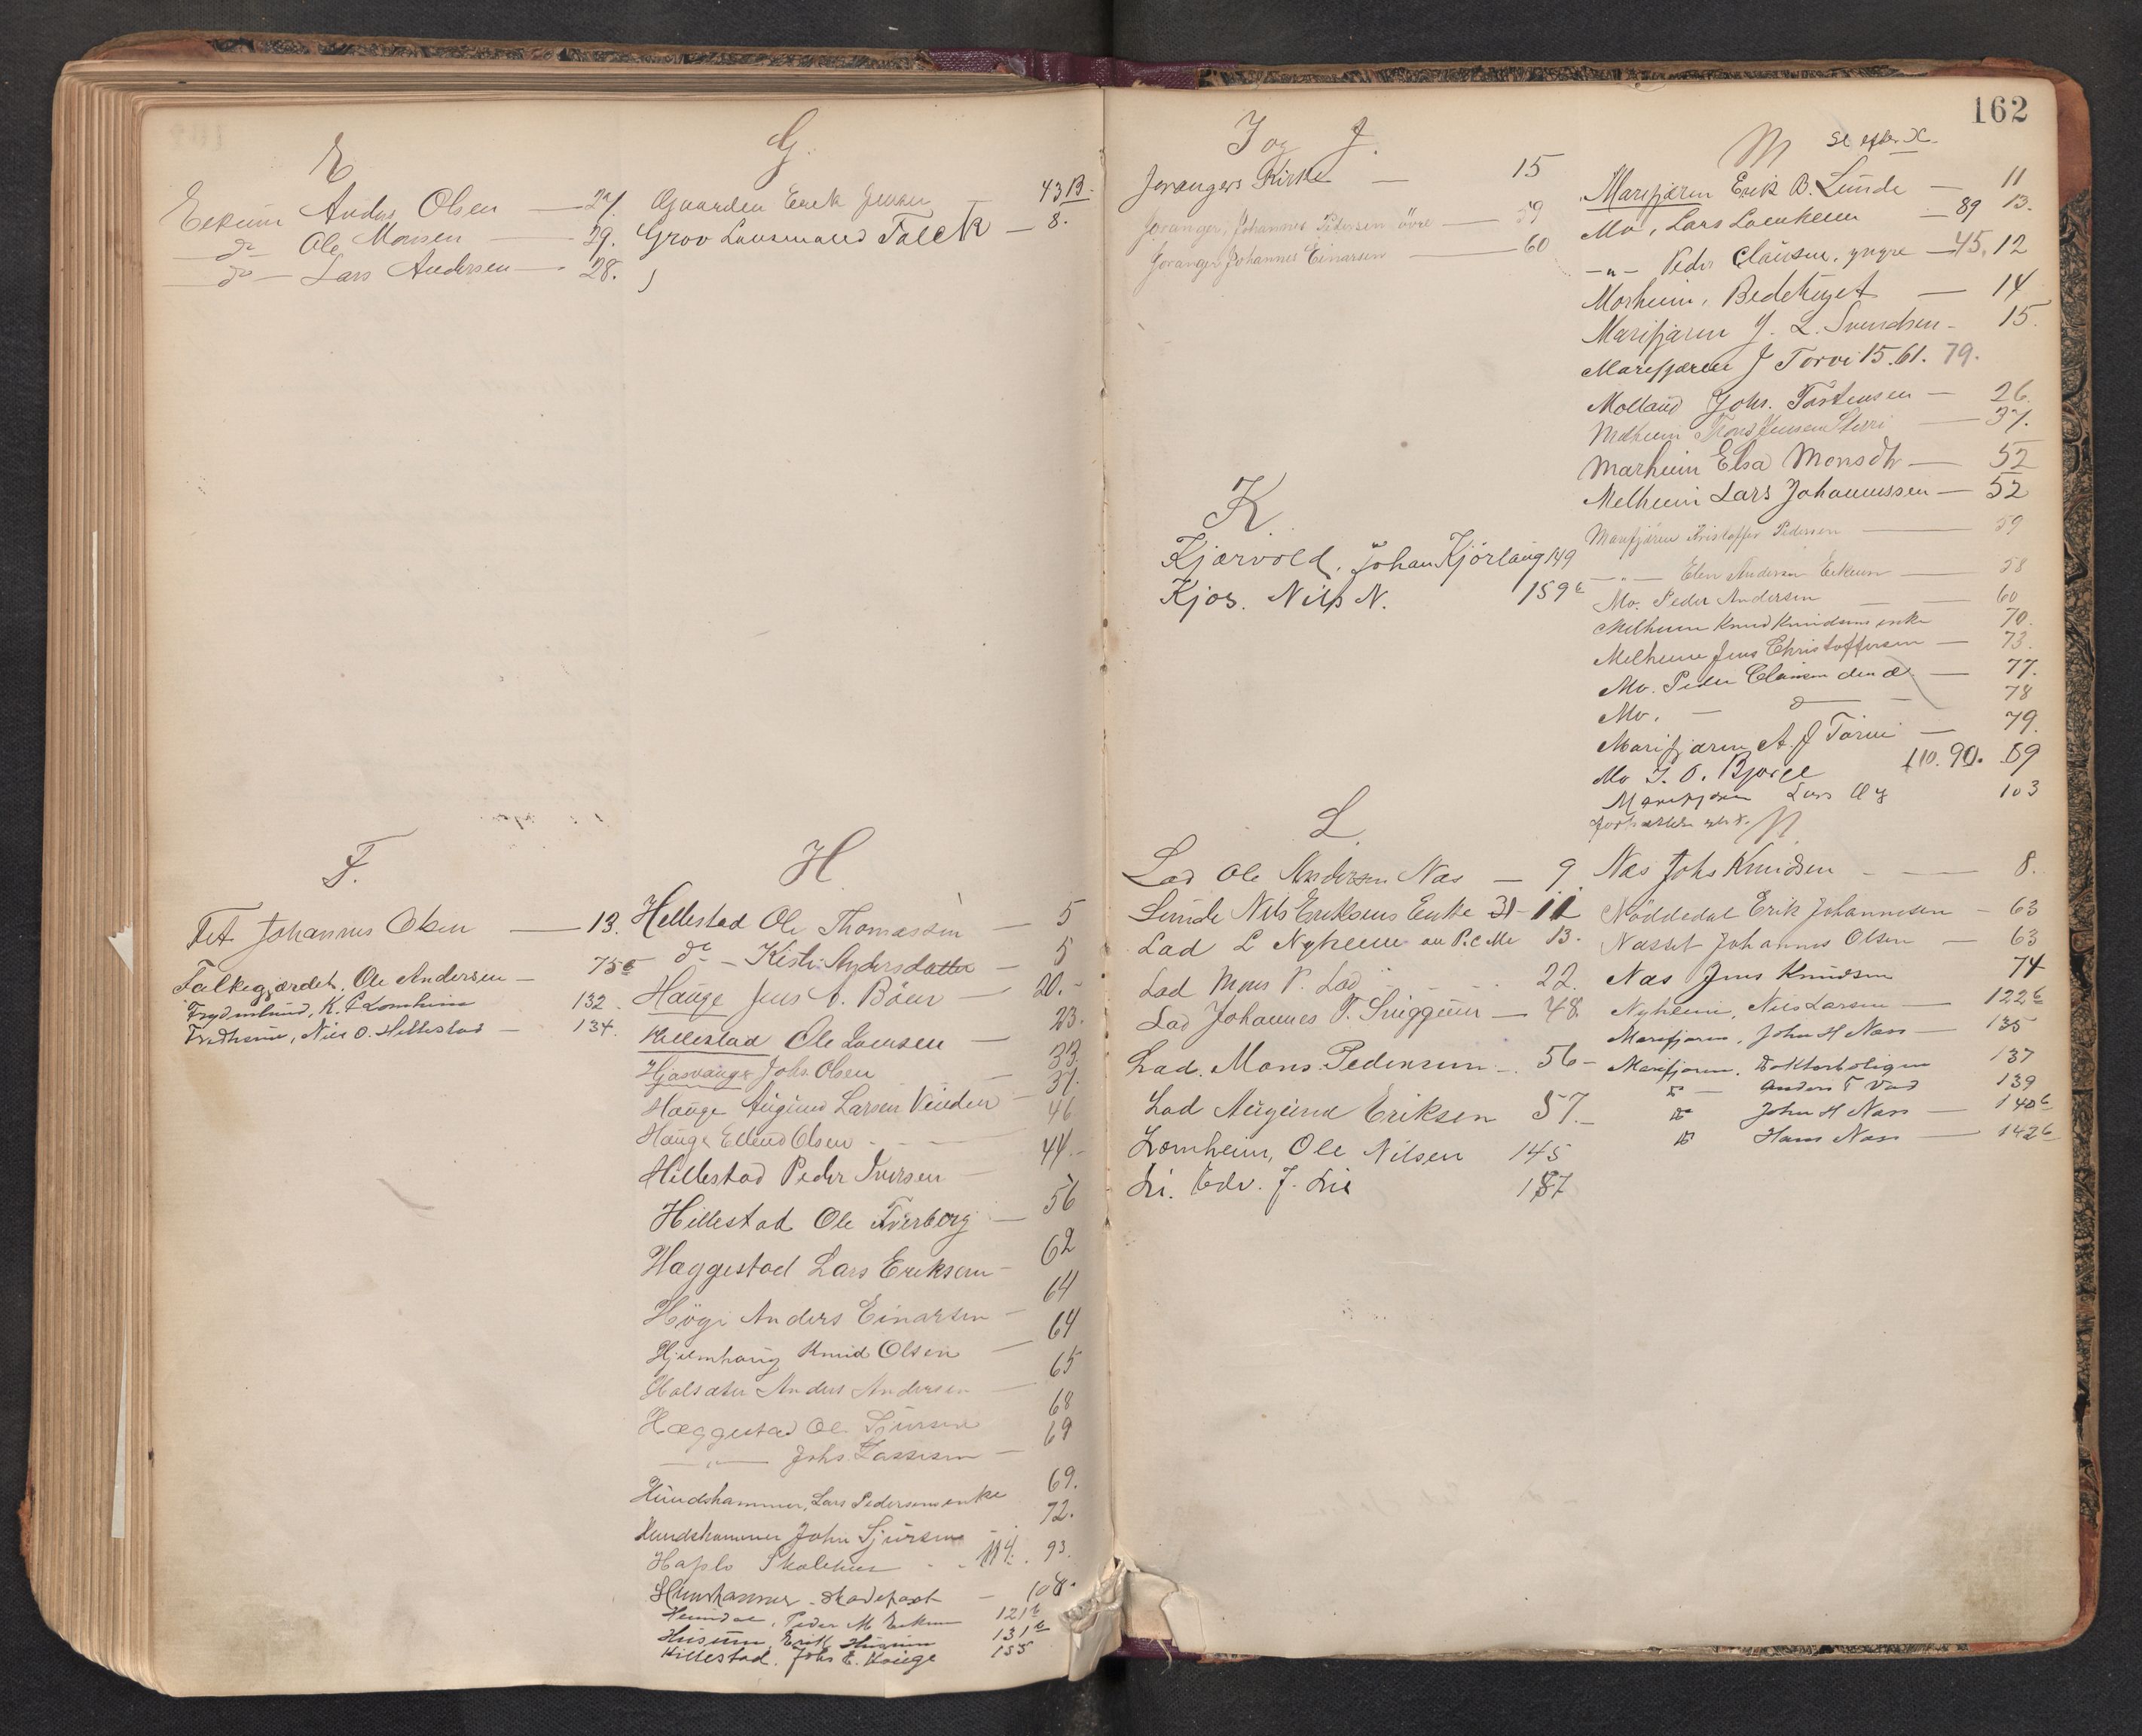 E
Eekum Anders Olsen — 27.
do Ole Monsen — 29.
do — Lars Andersen — 28.
F.
Fet Johannes Olsen — 13.
Falkegjærdet, Ole Andersen — 75b
Frydenlund, K. P. Lomheim 132
Fredheim, Nils O. Hillestad — 134.
G.
Gaarden Erik Jensen 43B.
Grov Lensmand Falck — 8.
H
Hellestad Ole Thomassen — 5
do — Kisti Andersdatter — 5
Hauge Jens A. Bøen — 20.-
Hillestad Ole Larsen — 23.
Hjøsvange Johs. Olsen — 33.
Hauge Augund Larsen — 37.
Hauge Ellend Olsen - 46
Hillestad Peder Iversen — 44.-
Hillestad Ole Tverberg — 56
Hæggestad Lars Eriksen — 62
Högi Anders Einarsen — 64
Hjelmhaug Knud Olsen — 64
Holsæter Anders Andersen — 65
Hæggestad Ole Sjursen 68
— „ — Johs. Lassesen — 69
Hundshammer, Lars Pedersens enke 69.
Hundshammer John Sjursen 72.
Haflo Skolehus 114. 93.
Hundhammer. — 108.
Heimdal, Peder M Eekum 121b
Husum, Erik Husum 131b
Hillestad. Johs E. Hauge 155
162
I og J.
Jorangers Kirke — 15
Joranger, Johannes Pedersen övre — 59
Joranger Johannes Einarsen — 60
K.
Kjærvold. Johan Kjörlaug 149
Kjos. Nils N. 159b
L
Lad Ole Andersen Næs — 9.
Lunde Nils Eriksens Enke 31 - 11
Lad L Nyheim 13.
Lad Mons P. Lad 22.
Lad Johannes T. Sniggum — 48
Lad. Mons Pedersen — 56-
Lad Augund Eriksen 57.-
Lomheim, Ole Nilsen 145
Li. Edv. J. Lie 157
M se efter X.
Marifjæren Erik B. Lunde — 11
Mo, Lars Lomheim — 89 13.
— „ — Peder Clausen, yngre — 45, 12
Morheim, Bedehuset — 14
Marifjæren J. L. Svendsen — 15.
Marifjæren J Torvi 15. 61. 79.
Molland Johs. Torstensen — 26.
Melheim — 37.
Marheim Elsa Monsdtr — 52
Melheim Lars Johannessen — 52
Marifjæren Kristoffer Pedersen — 59
— „ — Elen Andersen Eekum — 58
Mo. Peder Andersen — 60
Melheim Knud Knudsens enke 70.
Melheim Jens Christoffersen — 73.
Mo. Peder Clausen den æ. — 77.
Mo. — do — 78
Marifjæren A. J Torvi — 79.
Mo I. O. Bjørge 110. 90. 89
Marifjæren Lars 103
N
Næs Johs Knudsen — 8.
Nöddedal Erik Johannesen — 63
Næsset Johannes Olsen — 63
Næs Jens Knudsen 74
Nyheim, Nils Larsen — 122b
Marifjæren, John H Næss — 135
Marifjæren. Doktorboligen 137
do — Anders T Vad 139
do John H Næss — 140b
do Hans Næss — 142b